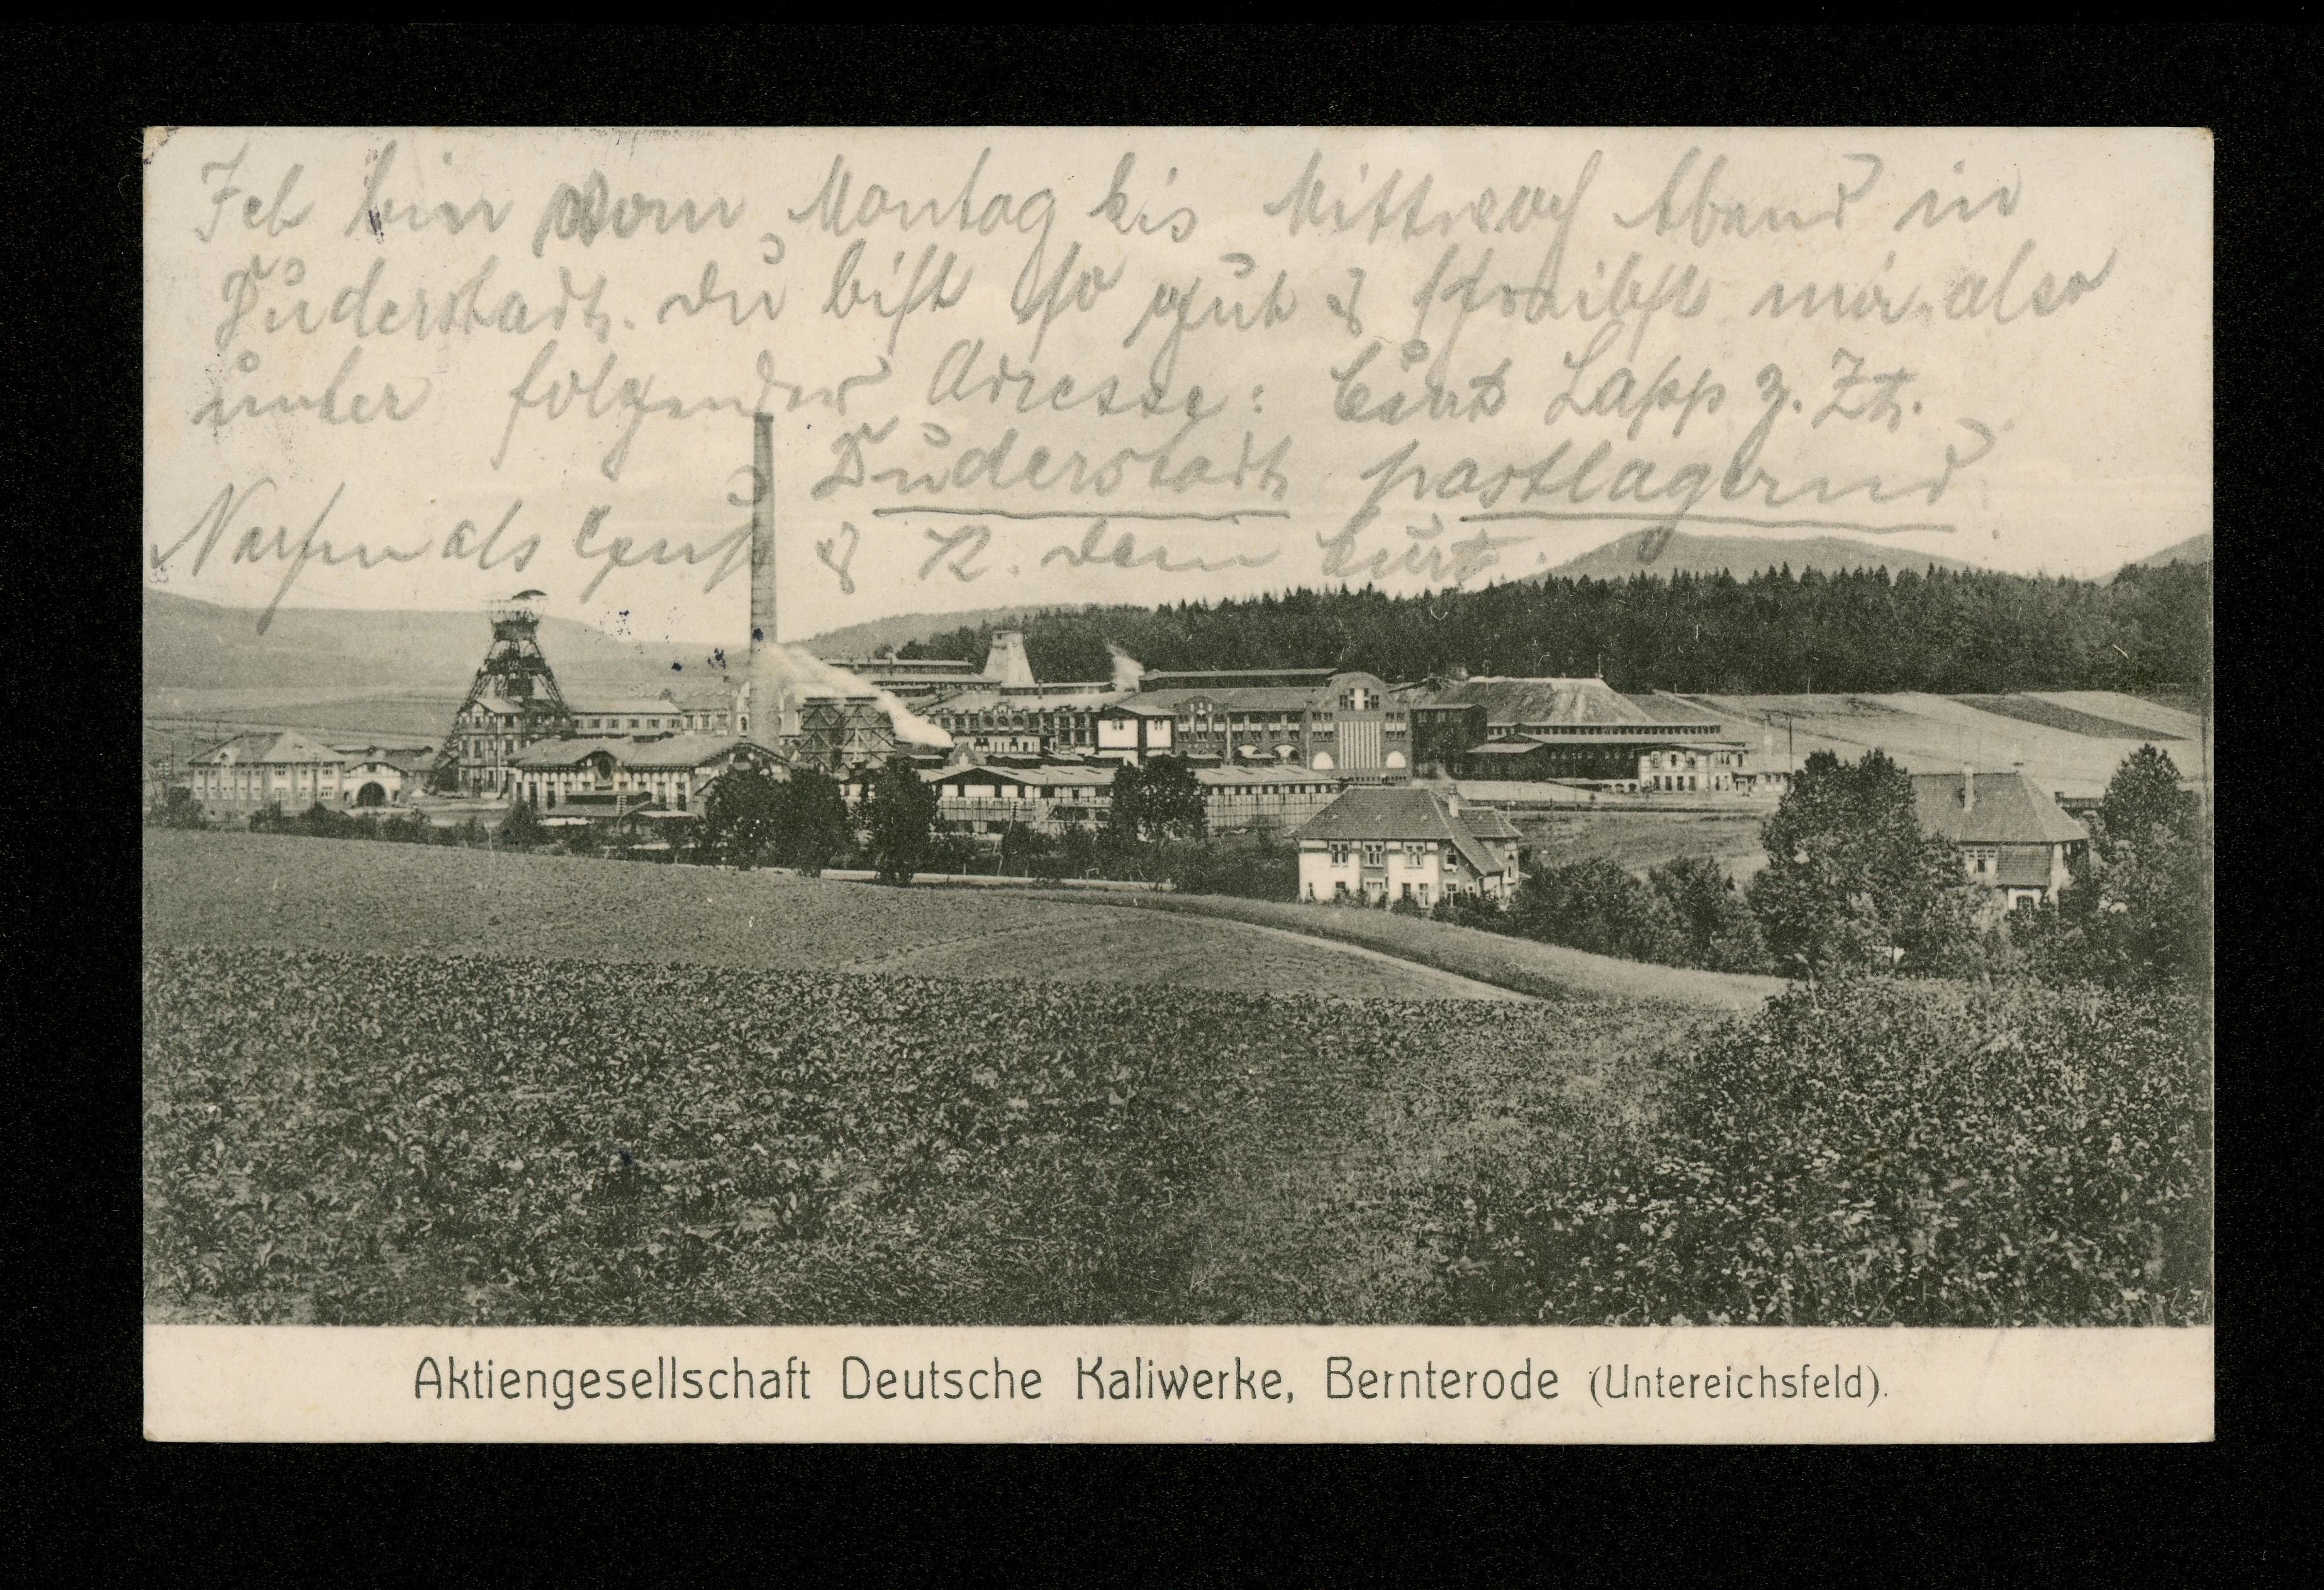 Ich bin von Montag bis Mittwoch Abend in
Duderstadt. Du bist so gut & schreibst mir also
unter folgender Adresse: Curt Lapp z. Zt.
Duderstadt postlagernd
Nochmals Gruß & K. Dein Curt.
Aktiengesellschaft Deutsche Kaliwerke, Bernterode (Untereichsfeld).